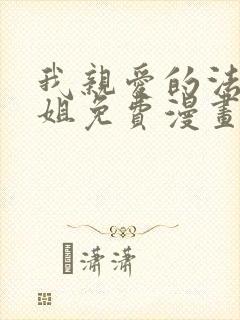 我親愛的法
姐免費漫畫
瀟瀟